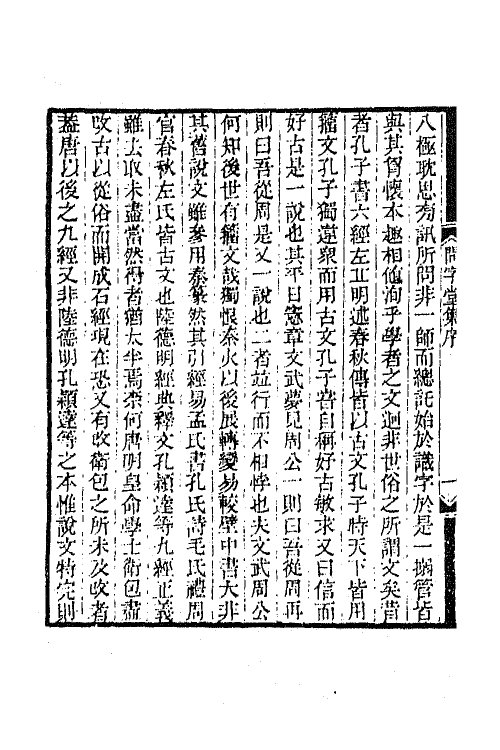 問字堂集序
八極耽思旁訊所問非一師而總託始於識字於是一搦管皆
與其胷懷本趣相値洵乎學者之文迥非世俗之所謂文矣昔
者孔子書六經左丘明述春秋傳皆以古文孔子特天下皆用
籀文孔子獨違衆而用古文孔子嘗自稱好古敏求又曰信而
好古是一說也其平日憲章文武夢見周公一則曰吾從周再
則曰吾從周是又一說也二者竝行而不相悖也夫文武周公
何知後世有籀文哉獨恨秦火以後展轉變易較壁中書大非
其舊說文雖參用秦篆然其引經易孟氏書孔氏詩毛氏禮周
官春秋左氏皆古文也陸德明經典釋文孔穎達等九經正義
雖去取未盡當然得者猶太半焉柰何唐明皇命學士衛包盡
改古以從俗而開成石經現在恐又有改衛包之所未及改者
蓋唐以後之九經又非陸德明孔穎達等之本惟說文特完則